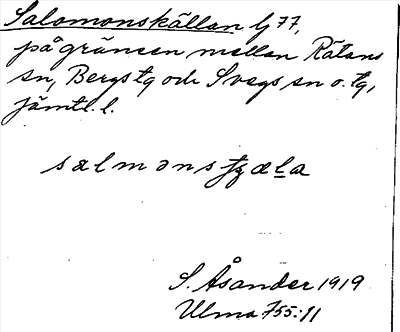 Salomonskällan lj 77,
på gränsen mellan Rätans
sn, Bergs tg och Svegs sn o. tg,
Jämtl. l.
salmonsꞎæla
S. Åsander 1919
Ulma 755:11